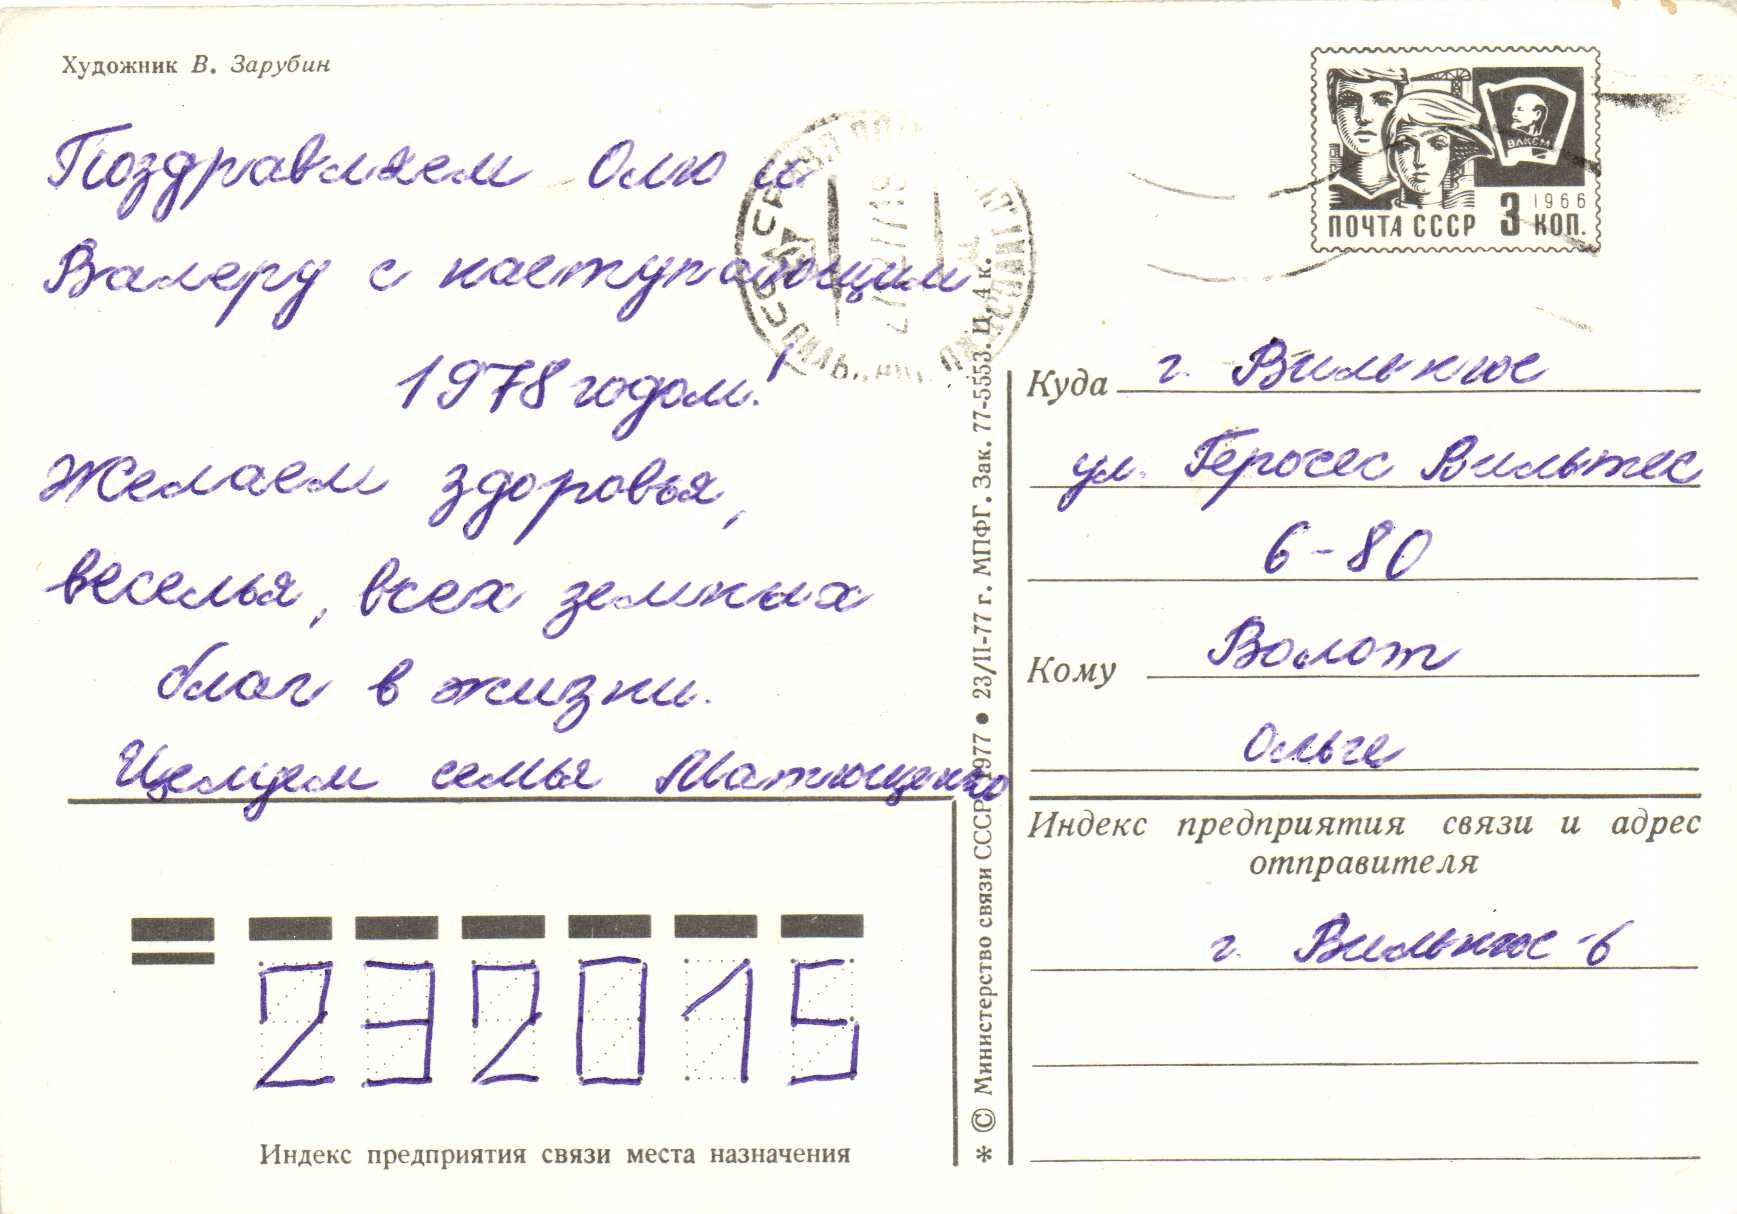 Художник В. Зарубин
Поздравляем Олю и
Валеру с наступающим
1978 годом!
Желаем здоровья,
веселья, всех земных
благ в жизни.
Целуем семья Матющенко
ВЛКСМ
1966
ПОЧТА СССР 3 КОП.
Куда г. Вильнюс
ул. Геросес Вильтес
6-80
Кому Волот
Ольге
Индекс предприятия связи и адрес
отправителя
г. Вильнюс-6
232015
Индекс предприятия связи места назначения
* © Министерство связи СССР 1977 ● 23/II-77 г. МПФГ. Зак. 77-5553. Ц. 4 к.